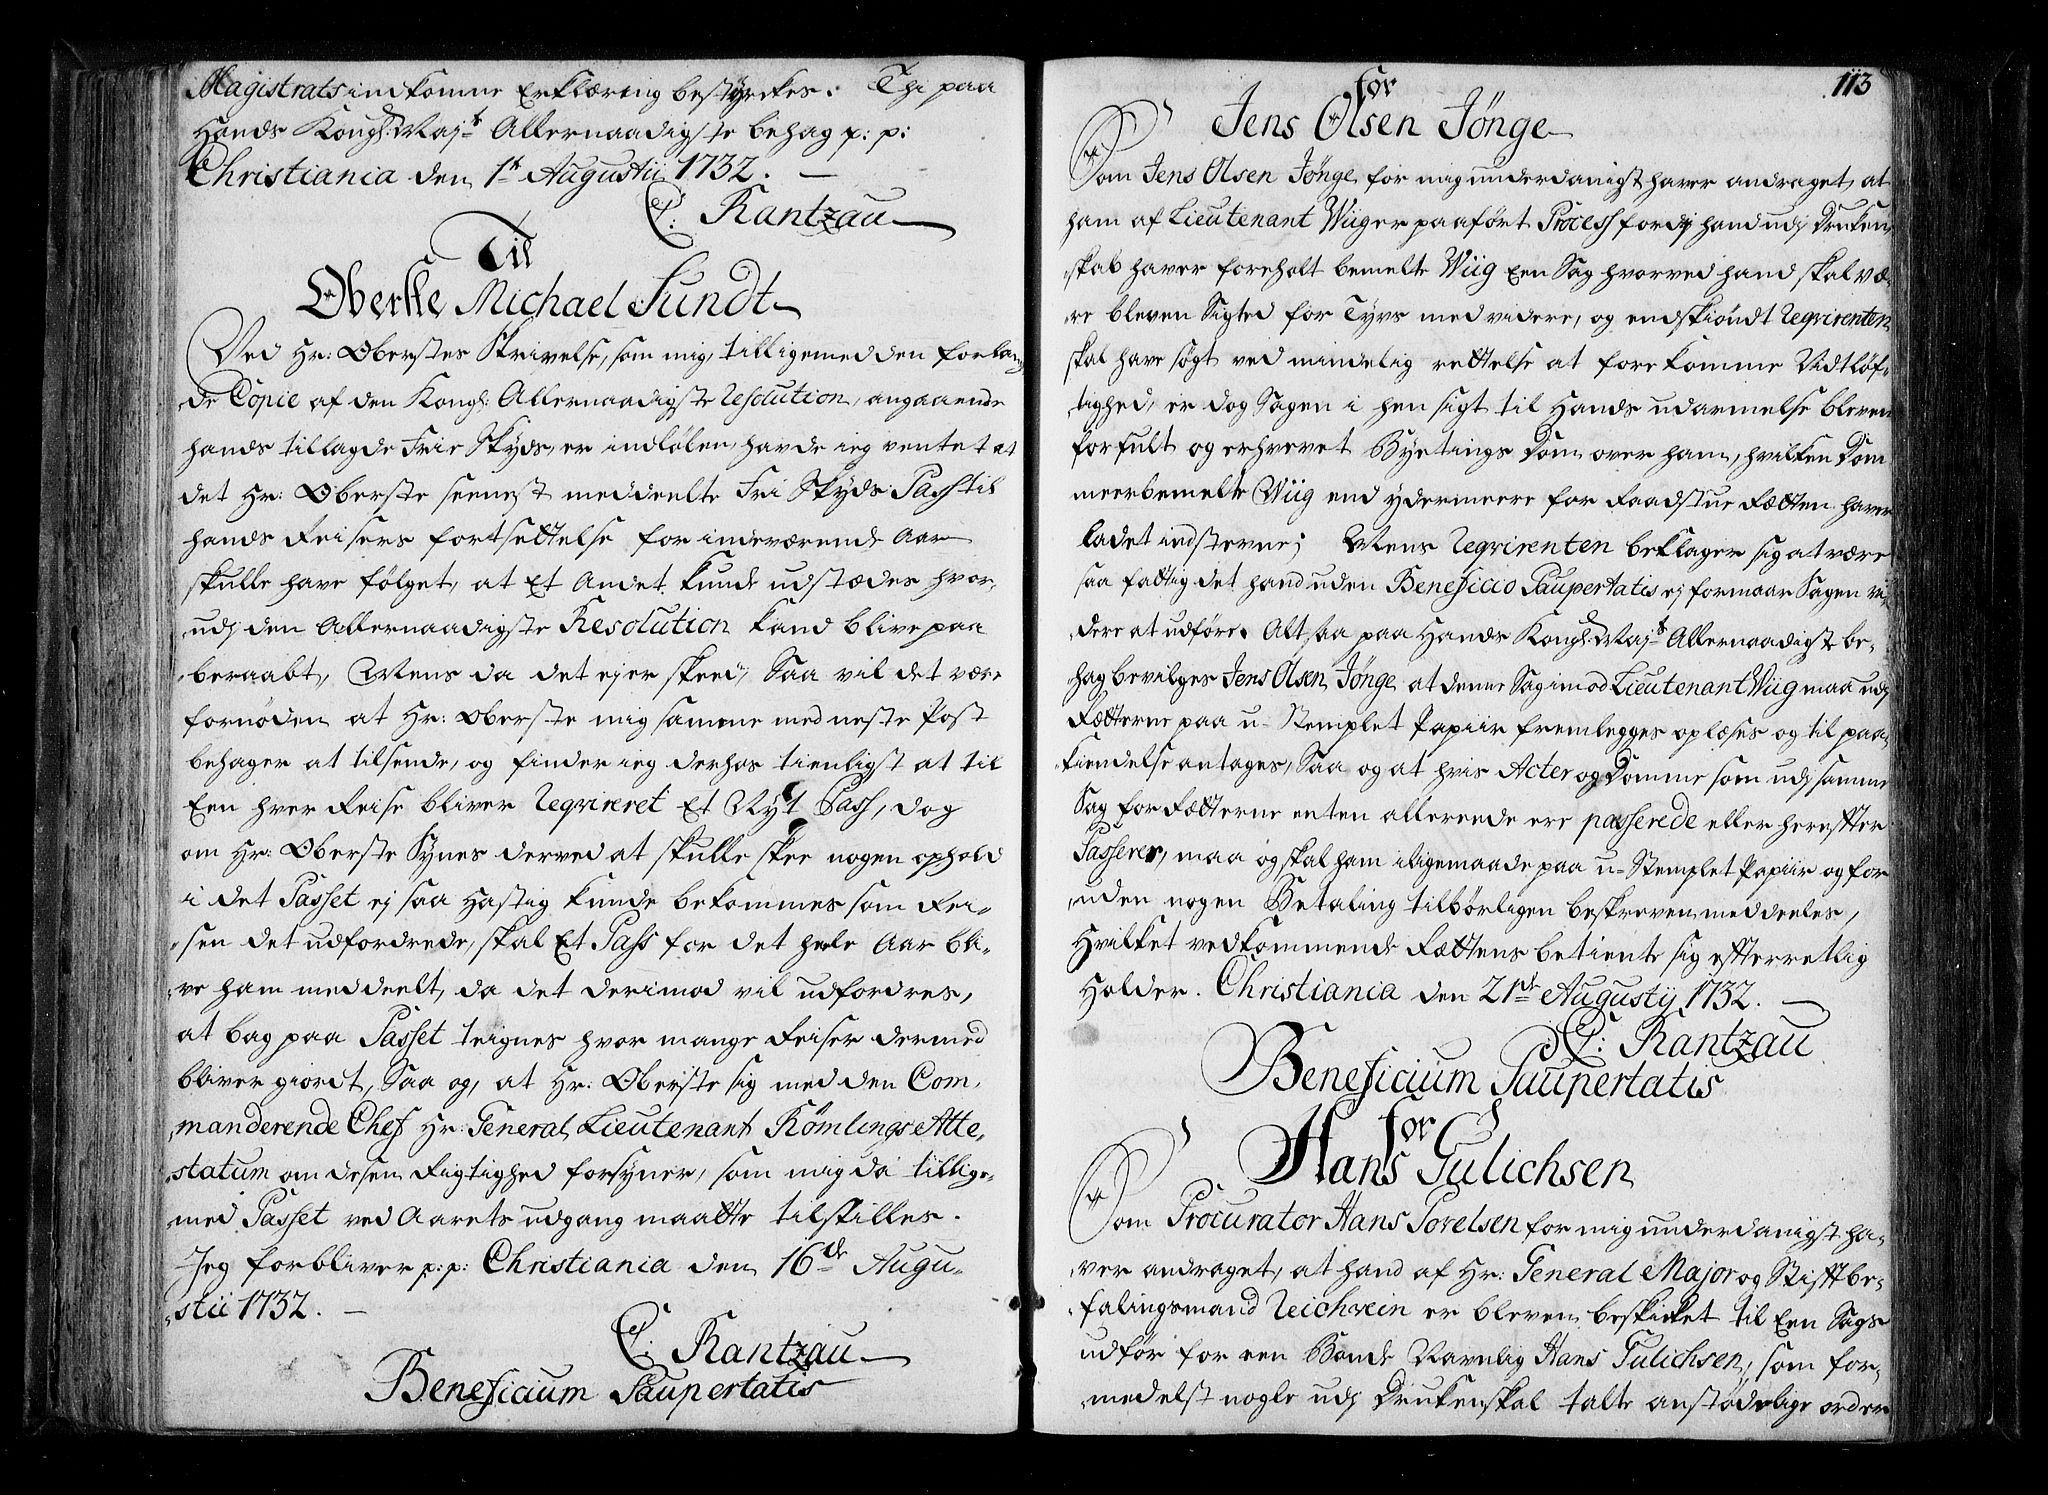 Magistrats indkomne Erklæring bestyrckes: Thi paa
Hands Kongl: Maj.ts Allernaadigste behag p: p:
Christiania den 1.t Augustii 1732. —
C: Rantzau
Til
Oberste Michael Sundt
Ved Hr: Oberstes Skrivelse, som mig tilligemed den forlan-
de Copie af den Kongl: Allernaadigste Resolution, angaaende
hands tillagde Frie Skyds, er indløben, havde ieg ventet at
det Hr: Oberste seenest meddeelte Fri Skyds Pass til
hands Reisers fortsettelse for indeværende Aar
skulle have følget, at Et Andet kunde udstædes hvor-
udj den Allernaadigste Resolution kand blive paa
beraabt, Mens da det ej er skeed, Saa vil det være
fornøden at Hr: Oberste mig samme med neste Post
behager at tilsende, og finder ieg derhos tienligst at til
Een hver Reise bliver Reqvireret Et Nyt Pass, dog
om Hr: Oberste Synes derved at skulle skee nogen ophold
i det Passet ej saa Hastig kunde bekommes som Rei-
sen det udfordrede, skal Et Pass for det hele Aar bli-
ve ham meddeelt, da det derimod vil udfordres,
at bag paa Passet teignes hvor mange Reiser dermed
bliver giordt, Saa og, at Hr: Oberste sig med den Com-
manderende Chef Hr: General Lieutenant Rømlings Atte-
statum om desen Rigtighed forsyner, som mig da tillige-
med Passet ved Aarets udgang maatte tilstilles.
Jeg forbliver p: p: Christiania den 16.de Augu-
stii 1732. —
C: Rantzau
Beneficium Paupertatis
113
for
Jens Olsen Jønge
Som Jens Olsen Jønge for mig underdanigst haver andraget, at
ham af Lieutenant Wiig er paaført Process fordj hand udj Druken-
skab haver foreholt bemelte Wiig Een Sag hvorved hand skal væ-
re bleven Sigted for Tyvs med videre, og endskiøndt Reqvirenten
skal have søgt ved mindelig rettelse at forekomme Vidtløf-
tighed, er dog Sagen i hensigt til Hands udarmelse bleven
forfult og erhvevet Byetings Dom over ham, hvilken Dom
meerbemelte Wiig end ydermeere for Raadstue Retten haver
ladet indsterne; Mens Reqvirenten beklager sig at være
saa fattig det hand uden Beneficio Paupertatis ej formaar Sagen vi-
dere at udføre. Alt saa paa Hands Kongl: Maj.ts Allernaadigste be-
hag bevilges Jens Olsen Jønge at denne Sag imod Lieutenant Wiig maa udj
Retterne paa u-Stemplet Papiir fremlegges oplæses og til paa-
kiendelse antages, Saa og at hvis Acter og Domme som udj samme
Sag for Retterne enten allerede ere passerede eller hereffter
Passerer, maa og skal ham iligemaade paa u-Stemplet Papiir og for
uden nogen Betaling tilbørligen beskreven meddeeles,
Hvilket vedkommende Rettens betiente sig efterretlig
Holder. Christiania den 21.de Augustij 1732. —
C: Rantzau
Beneficium Paupertatis
for
Hans Gulichsen
Som Procurator Hans Porelsen for mig underdanigst ha-
ver andraget, at hand af Hr: General Major og Stifftbe-
falingsmand Reichwein er bleven beskicket til Een Sags
udför for een Bonde Navnlig Hans Gulichsen, som for-
medelst nogle udj Drukenskab talte anstødelige order